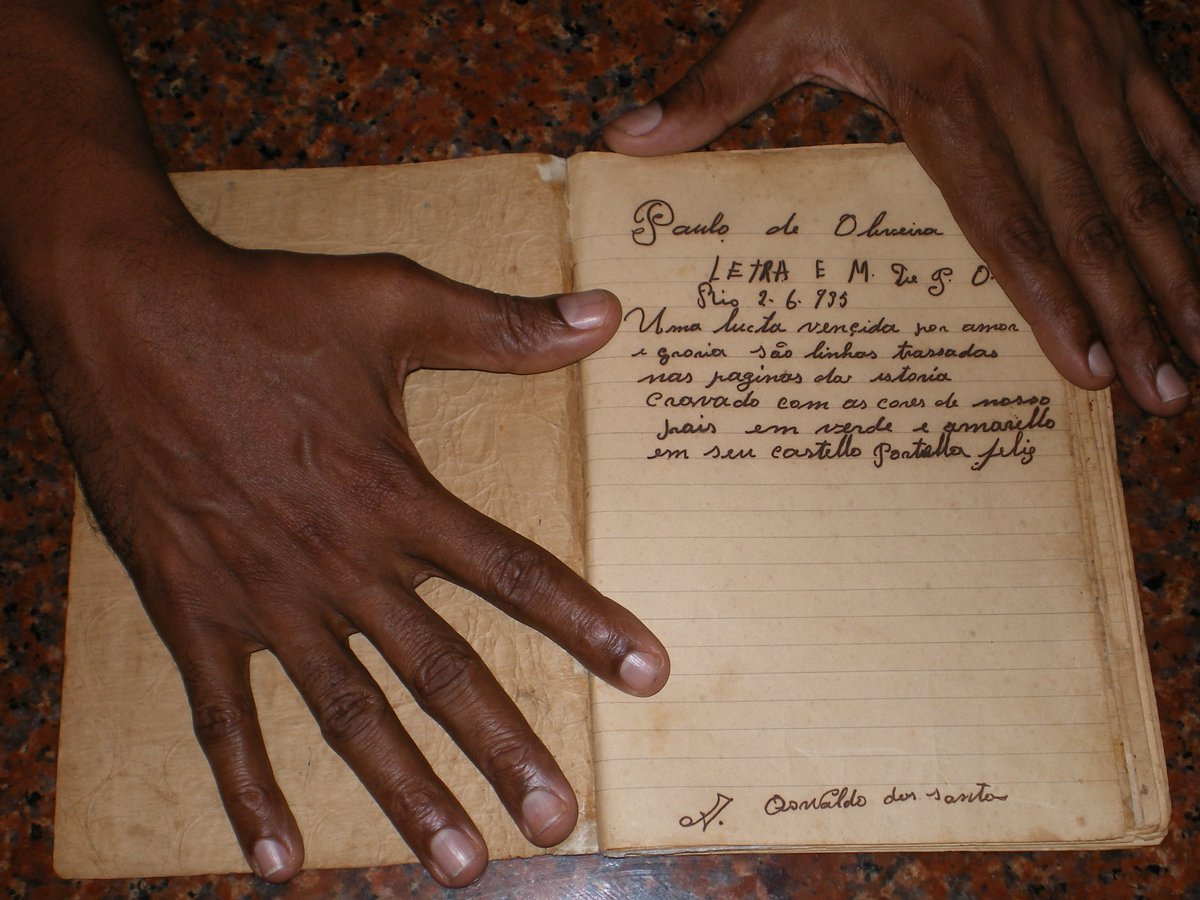 Paulo de Oliveira
LETRA E M. De P. O.
Rio 2. 6. 935
Uma lucta vençida por amor
e groria são linhas trassadas
nas paginas da istoria
Cravado com as cores de nosso
pais em verde e amarello
em seu castello Portella feliz
N. Osvaldo dos santos